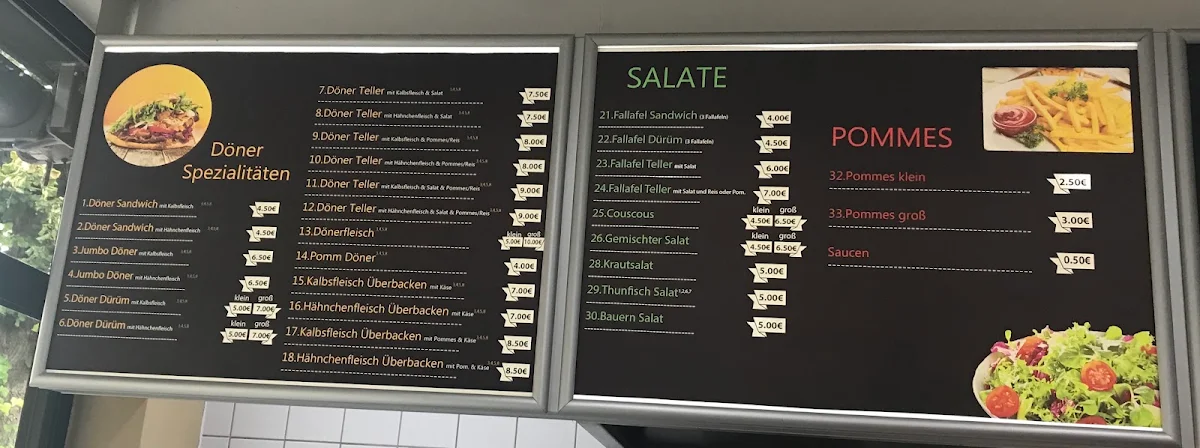 Döner
Spezialitäten
1.Döner Sandwich mit Kalbsfleisch 4.50€
2.Döner Sandwich mit Hähnchenfleisch 4.50€
3.Jumbo Döner mit Kalbsfleisch 6.50€
4.Jumbo Döner mit Hähnchenfleisch 6.50€
klein groß
5.Döner Dürüm mit Kalbsfleisch 5.00€ 7.00€
klein groß
6.Döner Dürüm mit Hähnchenfleisch 5.00€ 7.00€
7.Döner Teller mit Kalbsfleisch & Salat 7.50€
8.Döner Teller mit Hähnchenfleisch & Salat 7.50€
9.Döner Teller mit Kalbsfleisch & Pommes/Reis 8.00€
10.Döner Teller mit Hähnchenfleisch & Pommes/Reis 8.00€
11.Döner Teller mit Kalbsfleisch & Salat & Pommes/Reis 9.00€
12.Döner Teller mit Hähnchenfleisch & Salat & Pommes/Reis 9.00€
klein groß
13.Dönerfleisch 5.00€ 10.00€
14.Pomm Döner 4.00€
15.Kalbsfleisch Überbacken mit Käse 7.00€
16.Hähnchenfleisch Überbacken mit Käse 7.00€
17.Kalbsfleisch Überbacken mit Pommes & Käse 8.50€
18.Hähnchenfleisch Überbacken mit Pom. & Käse 8.50€
SALATE
21.Fallafel Sandwich (3 Fallafeln) 4.00€
22.Fallafel Dürüm (3 Fallafeln) 4.50€
23.Fallafel Teller mit Salat 6.00€
24.Fallafel Teller mit Salat und Reis oder Pom. 7.00€
klein groß
25.Couscous 4.50€ 6.50€
klein groß
26.Gemischter Salat 4.50€ 6.50€
28.Krautsalat 5.00€
29.Thunfisch Salat 1,2,4,7 5.00€
30.Bauern Salat 5.00€
POMMES
32.Pommes klein 2.50€
33.Pommes groß 3.00€
Saucen 0.50€